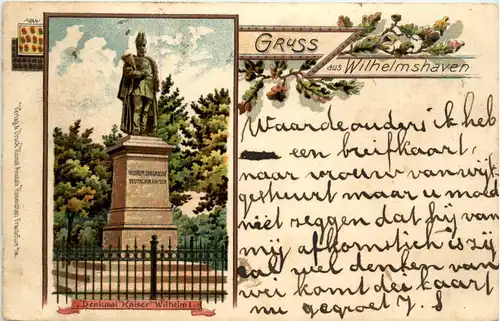 Gruss
aus Wilhelmshaven
WILHELM DER GROSSE
DEUTSCHER KAISER
"Denkmal Kaiser Wilhelm I."
Waarde ouders ik heb
een briefkaart
naar vrouw van wijk
gestuurt maar u moet
niet zeggen dat hij van
mij afkomstich is zij
zal wel denken van
wei komt des kaart
nu gegroet J. S